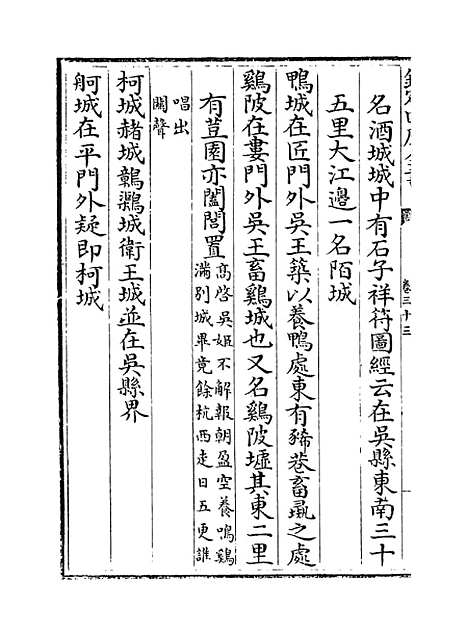 欽定四庫全書
卷三十三
名酒城城中有石子祥符圖經云在吳縣東南三十
五里大江邊一名陌城
鴨城在匠門外吳王築以養鴨處東有豨巷畜彘之處
鷄陂在婁門外吳王畜鷄城也又名鷄陂墟其東二里
有荳園亦闔閭置
高啓吳姬不解報朝盈空養鳴鷄
滿別城畢竟餘杭西走日五更誰
唱出
關聲
柯城赭城鶄鸂城衛王城並在吳縣界
舸城在平門外疑即柯城